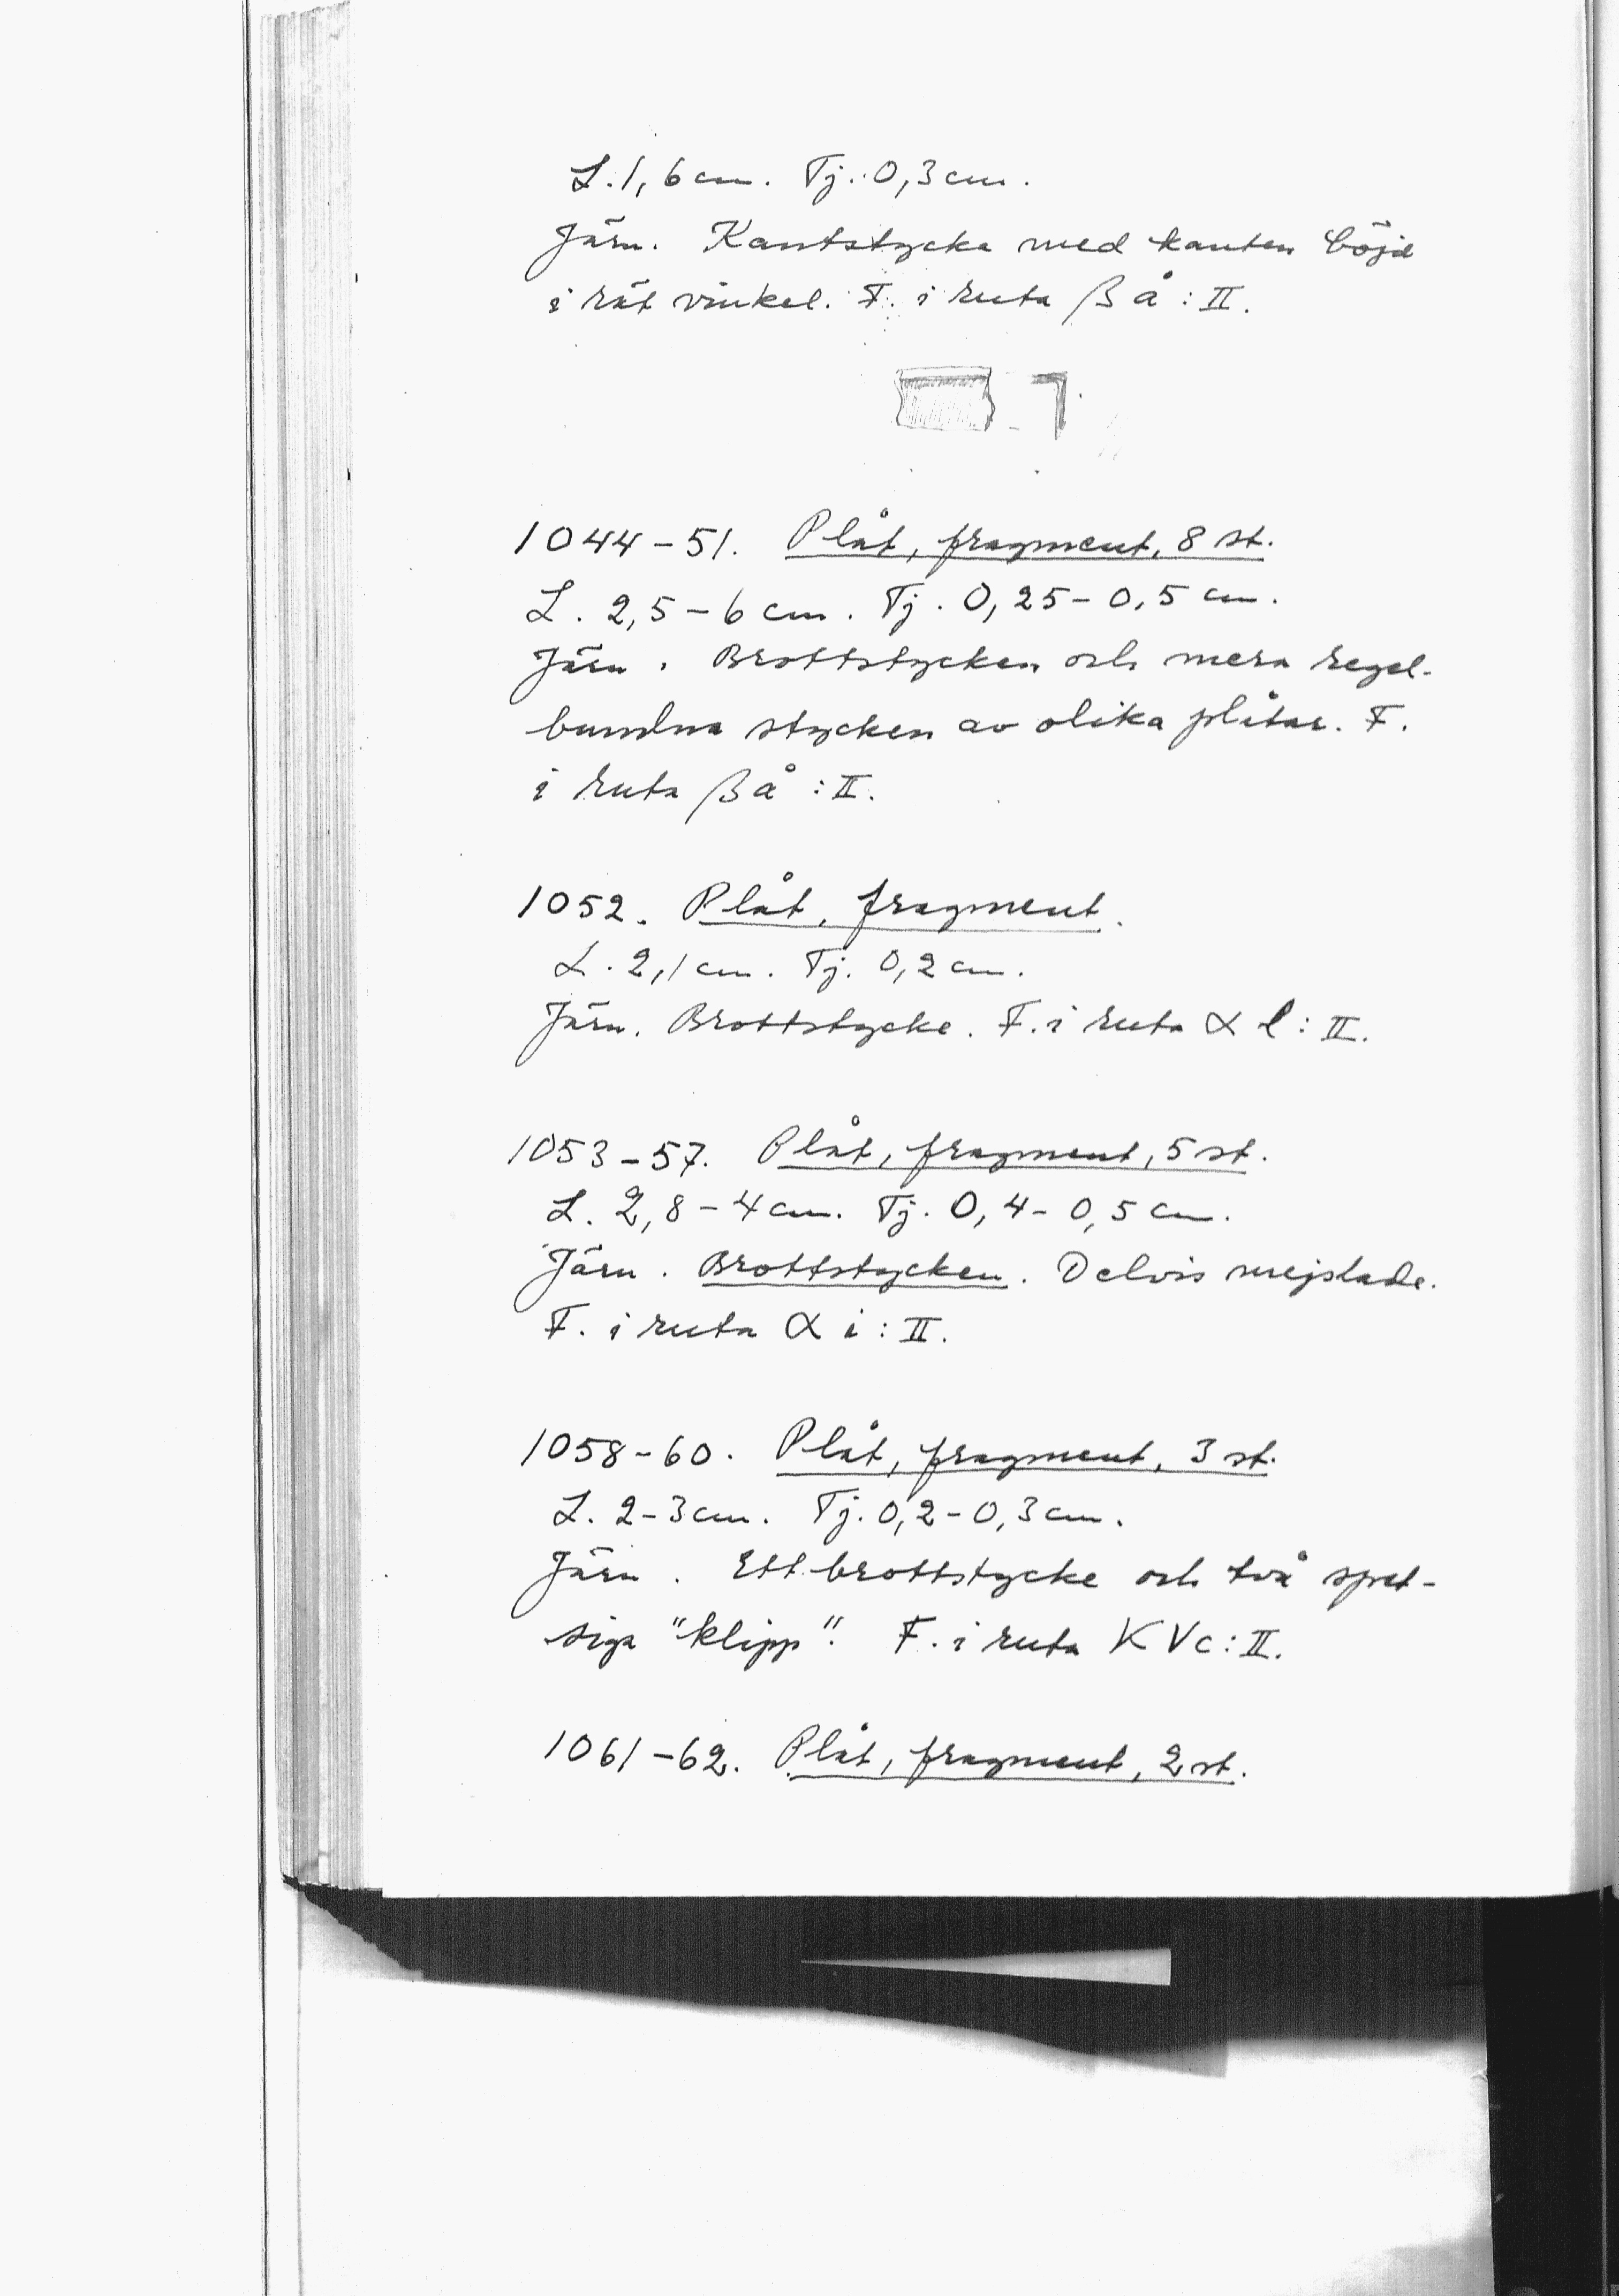 L. 1,6 cm. Tj. 0,3 cm.
Järn. Kantstycke med kanten böjd
i rät vinkel. F. i ruta β å : II.
1044-51. Plåt, fragment, 8 st.
L. 2,5-6 cm. Tj. 0,25-0,5 cm.
Järn. Brottstycken och mera regel-
bundna stycken av olika plåtar. F.
i ruta β å : II.
1052. Plåt, fragment.
L. 2,1 cm. Tj. 0,2 cm.
Järn. Brottstycke. F. i ruta α l : II.
1053-57. Plåt, fragment, 5 st.
L. 2,8-4 cm. Tj. 0,4-0,5 cm.
Järn. Brottstycken. Delvis mejslade.
F. i ruta α i : II.
1058-60. Plåt, fragment, 3 st.
L. 2-3 cm. Tj. 0,2-0,3 cm.
Järn. Ett brottstycke och två spet-
siga "klipp". F. i ruta K V c : II.
1061-62. Plåt, fragment, 2 st.